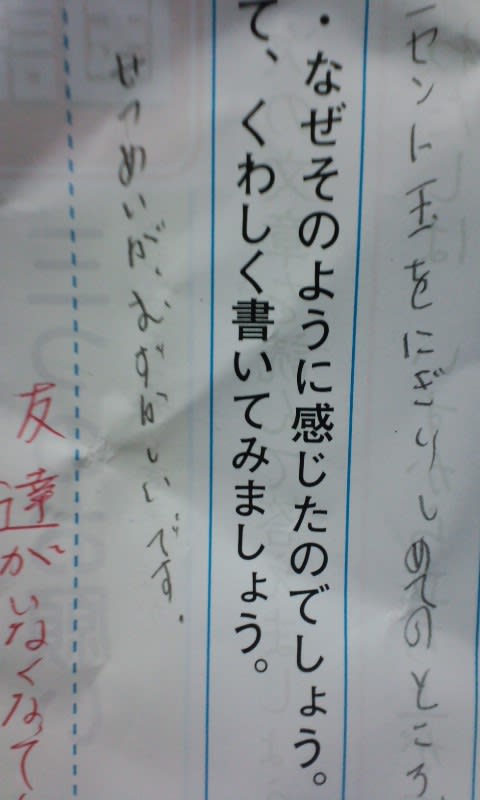 一セント玉をにぎりしめてのところ
・なぜそのように感じたのでしょう。
て、くわしく書いてみましょう。
せつめいが、むずかしいです。
友達がいなくなって